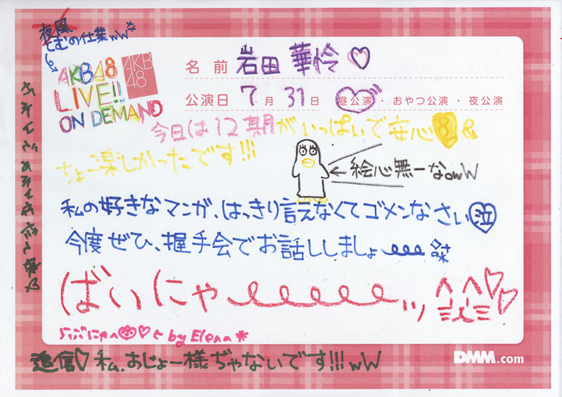 夜風
せむの仕業wW
AKB48
LIVE!!
ON DEMAND
AKB
48
名前 岩田 華怜♡
公演日 7月 31日 昼公演・おやつ公演・夜公演
今日は12期がいっぱいで安心 &
ちょー楽しかったです!!!
←絵心無ーなowW
私の好きなマンガ、はっきり言えなくてゴメンなさい泣
今度ぜひ、握手会でお話ししましょ
ばいにゃーッ
by Elena*
追信♡ 私、おじょー様ぢゃないです!!!wW
DMM.com